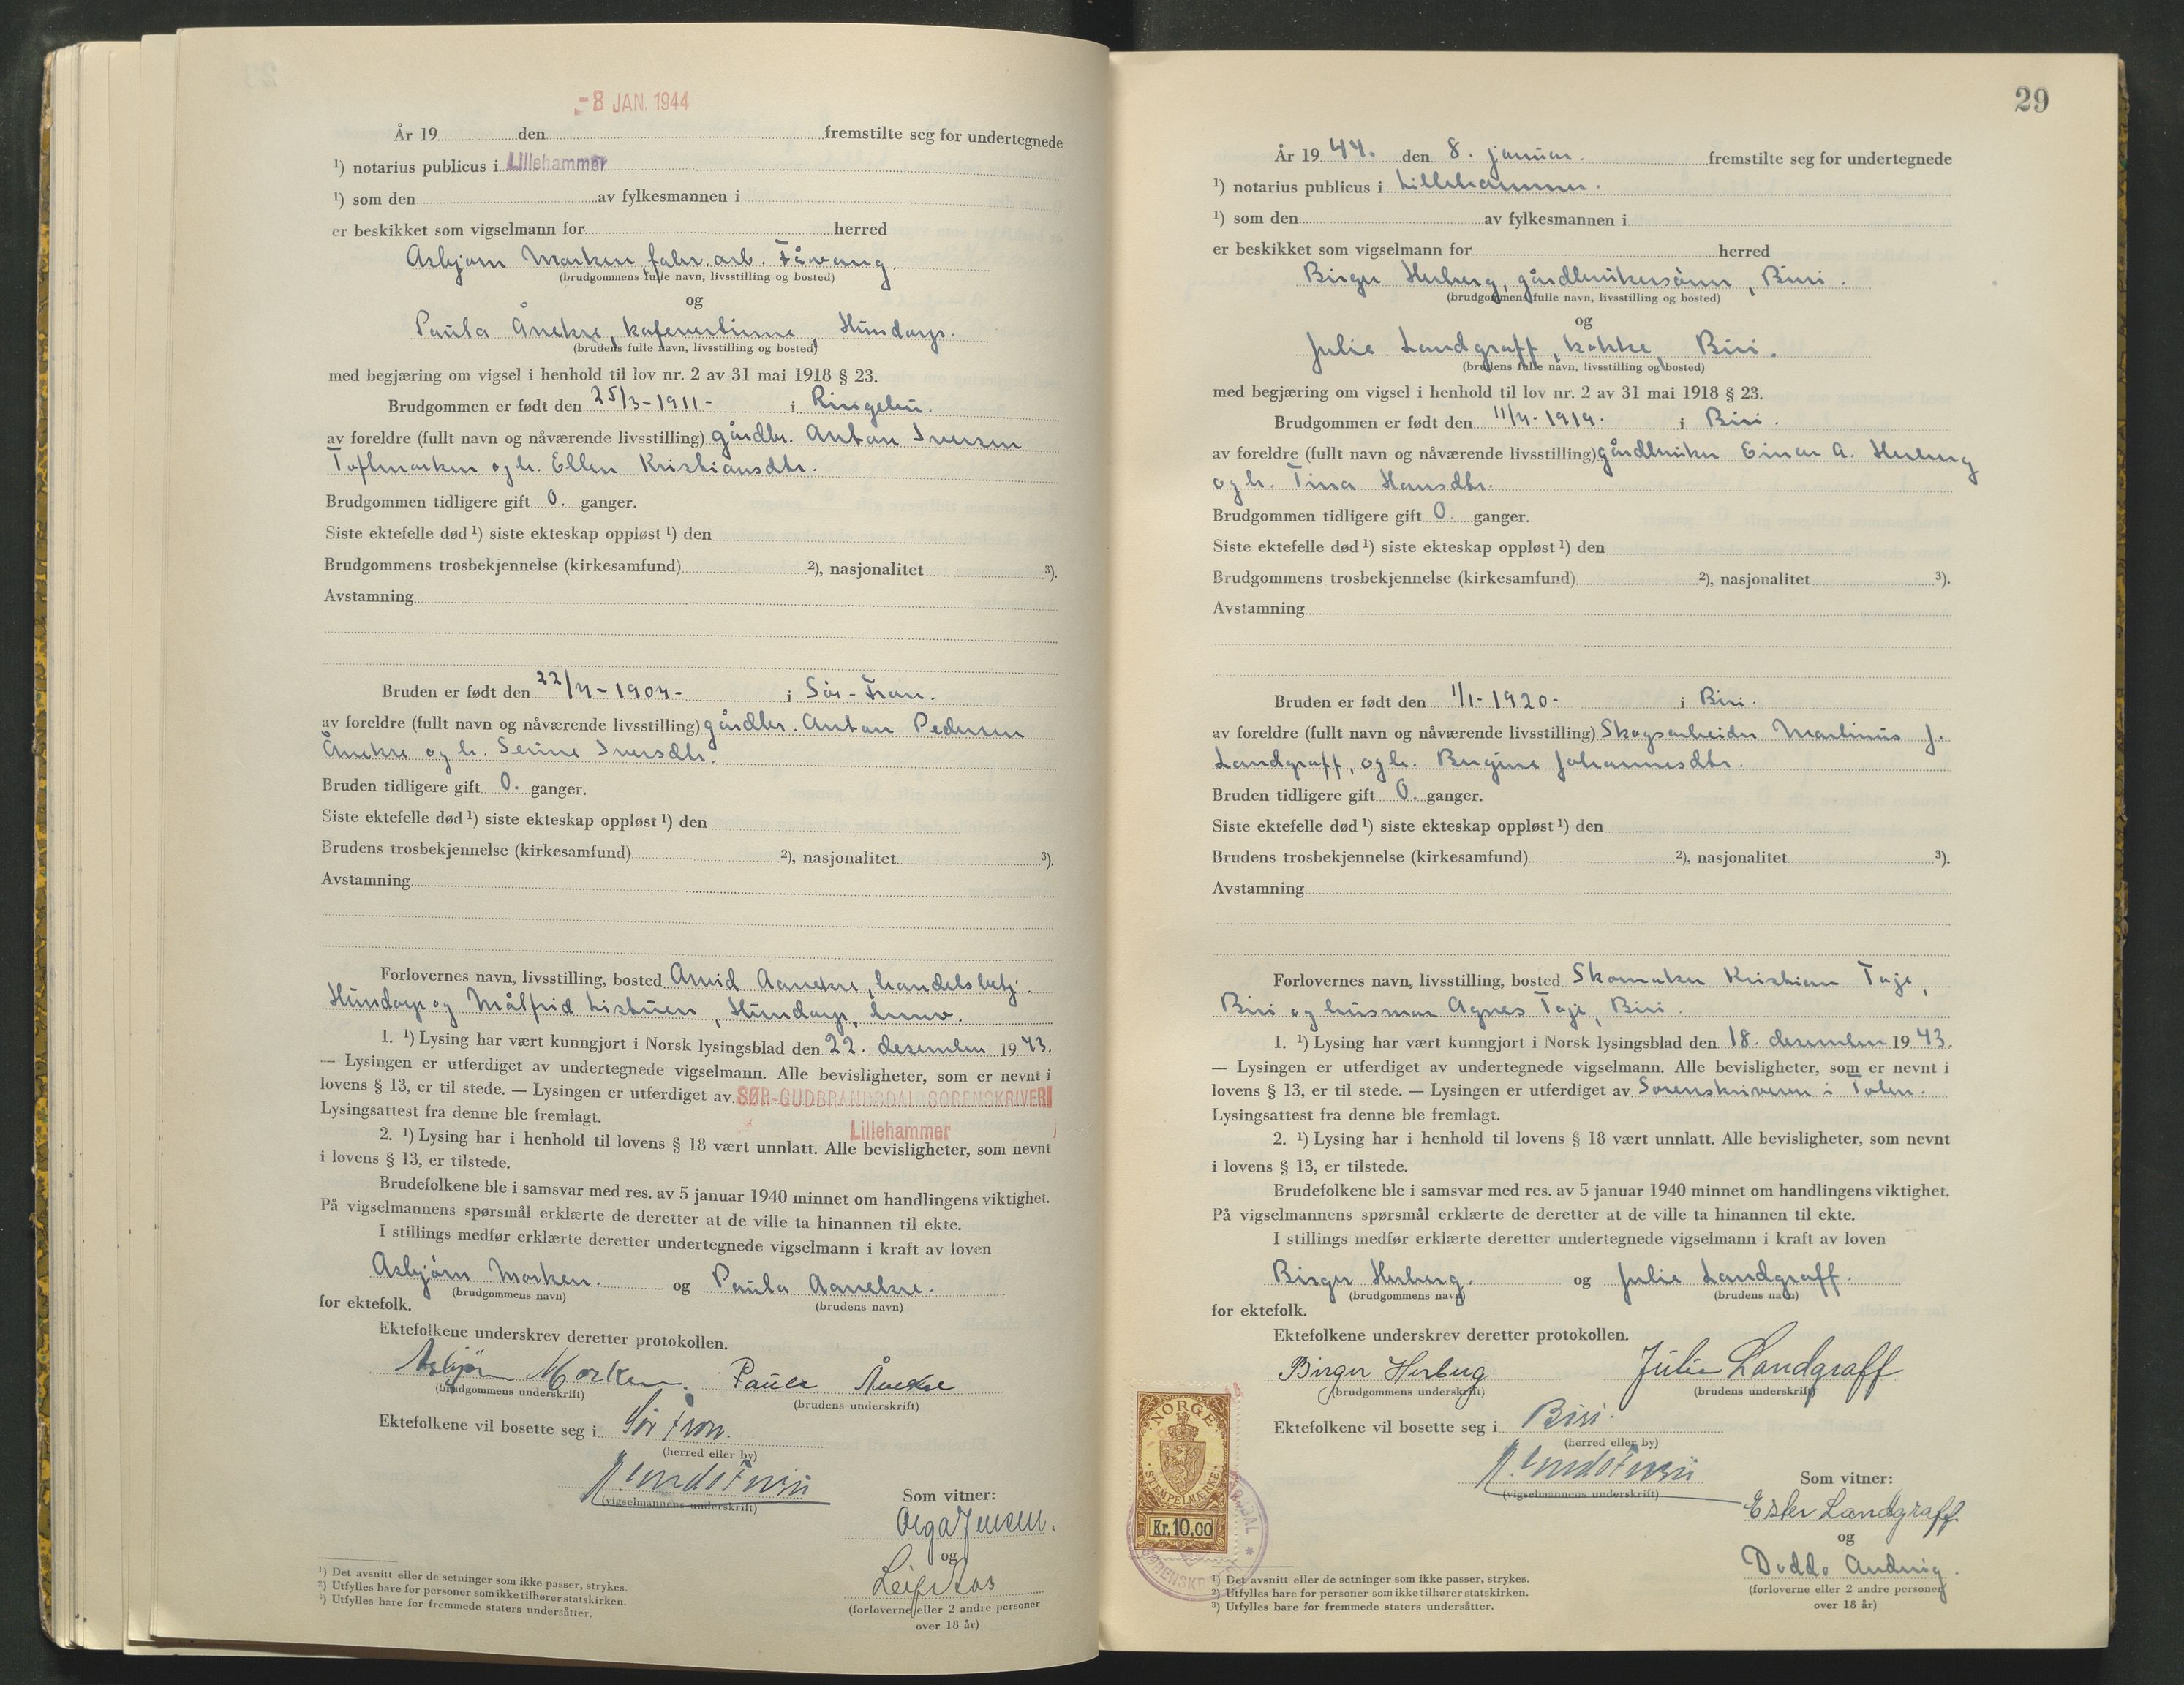 -8 JAN. 1944
År 19 den fremstilte seg for undertegnede
¹) notarius publicus i Lillehammer
¹) som den av fylkesmannen i
er beskikket som vigselmann for herred
Asbjørn Morken, fabr. arb. Fåvang
(brudgommens fulle navn, livsstilling og bosted)
og
Paula Ånekre, kafevertinne, Hundorp.
(brudens fulle navn, livsstilling og bosted)
med begjæring om vigsel i henhold til lov nr. 2 av 31 mai 1918 § 23.
Brudgommen er født den 25/3-1911- i Ringebu.
av foreldre (fullt navn og nåværende livsstilling) gårdbr. Anton Iversen
Toftmorken og h. Ellen Kristiansdtr.
Brudgommen tidligere gift 0. ganger.
Siste ektefelle død ¹) siste ekteskap oppløst ¹) den
Brudgommens trosbekjennelse (kirkesamfund) ²), nasjonalitet ³).
Avstamning
Bruden er født den 22/4-1904- i Sør-Fron.
av foreldre (fullt navn og nåværende livsstilling) gårdbr. Anton Pedersen
Ånekre og h. Serine Iversdtr.
Bruden tidligere gift 0. ganger.
Siste ektefelle død ¹) siste ekteskap oppløst ¹) den
Brudens trosbekjennelse (kirkesamfund) ²), nasjonalitet ³).
Avstamning
Forlovernes navn, livsstilling, bosted Arvid Aanekre, handelsbetj.
Hundorp og Målfrid Listuen, Hundorp,
1. ¹) Lysing har vært kunngjort i Norsk lysingsblad den 22. desember 1943.
— Lysingen er utferdiget av undertegnede vigselmann. Alle bevisligheter, som er nevnt i
lovens § 13, er til stede. — Lysingen er utferdiget av SØR-GUDBRANDSDAL SORENSKRIVERI
Lysingsattest fra denne ble fremlagt. Lillehammer
2. ¹) Lysing har i henhold til lovens § 18 vært unnlatt. Alle bevisligheter, som nevnt
i lovens § 13, er tilstede.
Brudefolkene ble i samsvar med res. av 5 januar 1940 minnet om handlingens viktighet.
På vigselmannens spørsmål erklærte de deretter at de ville ta hinannen til ekte.
I stillings medfør erklærte deretter undertegnede vigselmann i kraft av loven
Asbjørn Morken. og Paula Aanekre.
(brudgommens navn) (brudens navn)
for ektefolk.
Ektefolkene underskrev deretter protokollen.
Asbjør Morken. Paula Ånekre
(brudgommens underskrift) (brudens underskrift)
Ektefolkene vil bosette seg i Sør Fron.
(herred eller by)
(vigselmannens underskrift)
Som vitner:
Olga Jensen.
og
Leif Aas
(forloverne eller 2 andre personer
over 18 år)
¹) Det avsnitt eller de setninger som ikke passer, strykes.
²) Utfylles bare for personer som ikke tilhører statskirken.
³) Utfylles bare for fremmede staters undersåtter.
29
År 1944. den 8. januar. fremstilte seg for undertegnede
¹) notarius publicus i Lillehammer.
¹) som den av fylkesmannen i
er beskikket som vigselmann for herred
Birger Herberg, gårdbrukersønn, Biri.
(brudgommens fulle navn, livsstilling og bosted)
og
Julie Landgraff, kokke, Biri.
(brudens fulle navn, livsstilling og bosted)
med begjæring om vigsel i henhold til lov nr. 2 av 31 mai 1918 § 23.
Brudgommen er født den 11/4-1919. i Biri.
av foreldre (fullt navn og nåværende livsstilling) gårdbruker Einar A. Herberg
og h. Tina Hansdtr.
Brudgommen tidligere gift 0. ganger.
Siste ektefelle død ¹) siste ekteskap oppløst ¹) den
Brudgommens trosbekjennelse (kirkesamfund) ²), nasjonalitet ³).
Avstamning
Bruden er født den 11/1-1920- i Biri.
av foreldre (fullt navn og nåværende livsstilling) Skogsarbeider Martinus J.
Landgraff, og h. Birgine Johannesdtr.
Bruden tidligere gift 0. ganger.
Siste ektefelle død ¹) siste ekteskap oppløst ¹) den
Brudens trosbekjennelse (kirkesamfund) ²), nasjonalitet ³).
Avstamning
Forlovernes navn, livsstilling, bosted Skomaker Kristian Taje,
Biri og husmor Agnes Taje, Biri.
1. ¹) Lysing har vært kunngjort i Norsk lysingsblad den 18. desember 1943.
— Lysingen er utferdiget av undertegnede vigselmann. Alle bevisligheter, som er nevnt i
lovens § 13, er til stede. — Lysingen er utferdiget av Sorenskriveren i Toten.
Lysingsattest fra denne ble fremlagt.
2. ¹) Lysing har i henhold til lovens § 18 vært unnlatt. Alle bevisligheter, som nevnt
i lovens § 13, er tilstede.
Brudefolkene ble i samsvar med res. av 5 januar 1940 minnet om handlingens viktighet.
På vigselmannens spørsmål erklærte de deretter at de ville ta hinannen til ekte.
I stillings medfør erklærte deretter undertegnede vigselmann i kraft av loven
Birger Herberg. og Julie Landgraff.
(brudgommens navn) (brudens navn)
for ektefolk.
Ektefolkene underskrev deretter protokollen.
Birger Herberg Julie Landgraff
(brudgommens underskrift) (brudens underskrift)
Ektefolkene vil bosette seg i Biri.
(herred eller by)
(vigselmannens underskrift)
Som vitner:
Ester Landgraff.
og
Doddo
(forloverne eller 2 andre personer
over 18 år)
NORGE
STEMPELMERKE
Kr. 10.00
¹) Det avsnitt eller de setninger som ikke passer, strykes.
²) Utfylles bare for personer som ikke tilhører statskirken.
³) Utfylles bare for fremmede staters undersåtter.